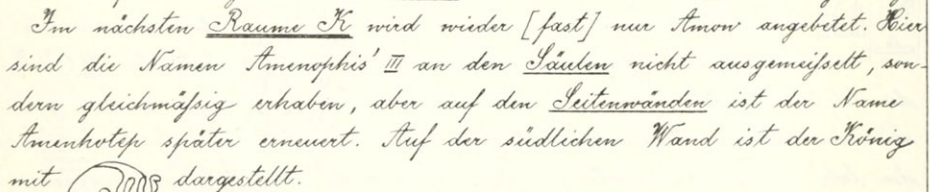 Im nächsten Raume K wird wieder [fast] nur Amon angebetet. Hier
sind die Namen Amenophis' III an den Säulen nicht ausgemeißelt, son-
dern gleichmäßig erhaben, aber auf den Seitenwänden ist der Name
Amenhotep später erneuert. Auf der südlichen Wand ist der König
mit dargestellt.